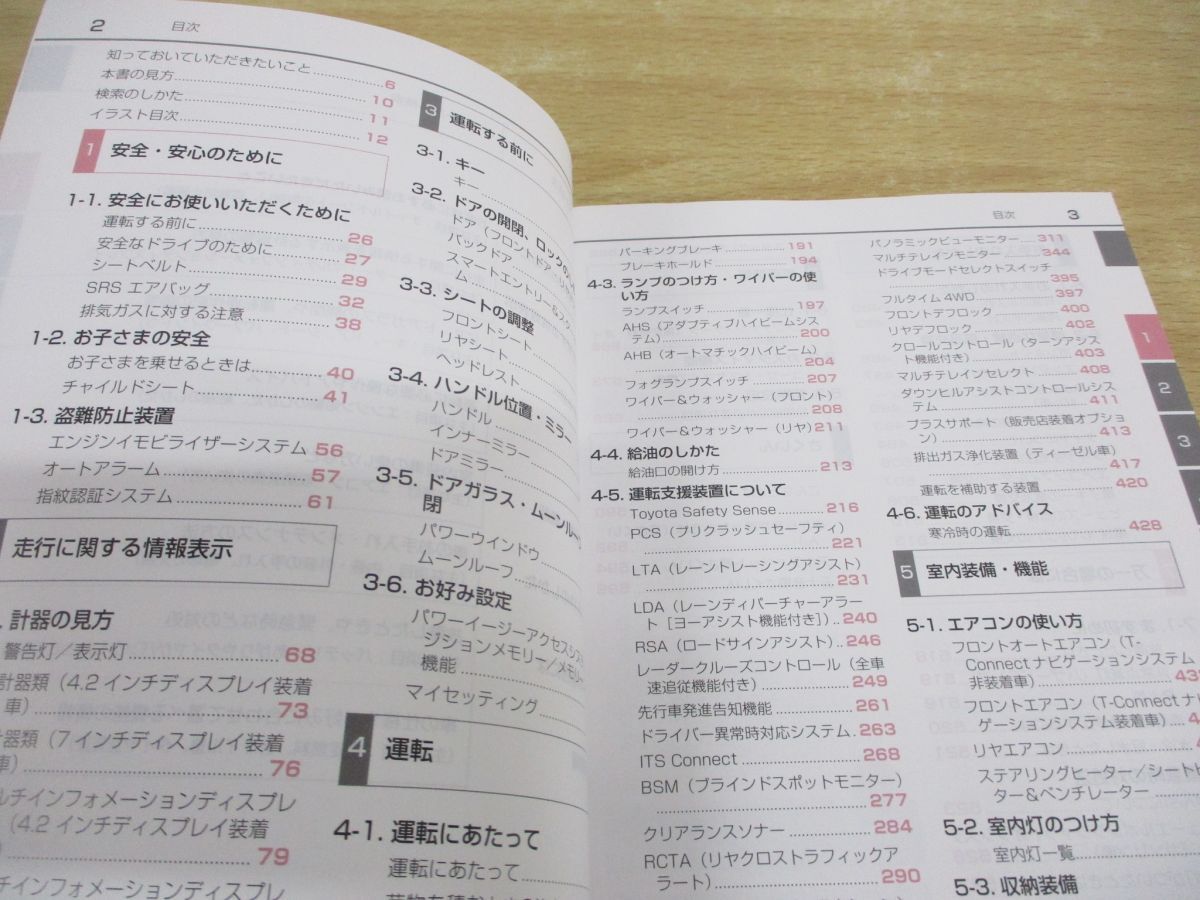 2 目次
知っておいていただきたいこと 6
本書の見方 10
検索のしかた 11
イラスト目次 12
1 安全・安心のために
1-1. 安全にお使いいただくために
運転する前に 26
安全なドライブのために 27
シートベルト 29
SRS エアバッグ 32
排気ガスに対する注意 38
1-2. お子さまの安全
お子さまを乗せるときは 40
チャイルドシート 41
1-3. 盗難防止装置
エンジンイモビライザーシステム 56
オートアラーム 57
指紋認証システム 61
走行に関する情報表示
計器の見方
警告灯/表示灯 68
計器類(4.2 インチディスプレイ装着
車) 73
器類(7 インチディスプレイ装着
車) 76
ルチインフォメーションディスプレ
(4.2 インチディスプレイ装着
) 79
チインフォメーションディスプレ
3 運転する前に
3-1. キー
キー
3-2. ドアの開閉、ロックの
ドア(フロントドア
バックドア
スマートエントリー&スタ
ム
3-3. シートの調整
フロントシート
リヤシート
ヘッドレスト
3-4. ハンドル位置・ミラー
ハンドル
インナーミラー
ドアミラー
3-5. ドアガラス・ムーンルー
閉
パワーウインドウ
ムーンルーフ
3-6. お好み設定
パワーイージーアクセスシス
ジションメモリー/メモリ
機能
マイセッティング
4 運転
4-1. 運転にあたって
運転にあたって
目次 3
パーキングブレーキ 191
ブレーキホールド 194
4-3. ランプのつけ方・ワイパーの使
い方
ランプスイッチ 197
AHS(アダプティブハイビームシス
テム) 200
AHB(オートマチックハイビーム)
204
フォグランプスイッチ 207
ワイパー&ウォッシャー(フロント)
208
ワイパー&ウォッシャー(リヤ) 211
4-4. 給油のしかた
給油口の開け方 213
4-5. 運転支援装置について
Toyota Safety Sense 216
PCS(プリクラッシュセーフティ)
221
LTA(レーントレーシングアシスト)
231
LDA(レーンディパーチャーアラー
ト[ヨーアシスト機能付き]) 240
RSA(ロードサインアシスト) 246
レーダークルーズコントロール(全車
速追従機能付き) 249
先行車発進告知機能 261
ドライバー異常時対応システム 263
ITS Connect 268
BSM(ブラインドスポットモニター)
277
クリアランスソナー 284
RCTA(リヤクロストラフィックア
ラート) 290
パノラミックビューモニター 311
マルチテレインモニター 344
ドライブモードセレクトスイッチ
395
フルタイム 4WD 397
フロントデフロック 400
リヤデフロック 402
クロールコントロール(ターンアシス
ト機能付き) 403
マルチテレインセレクト 408
ダウンヒルアシストコントロールシス
テム 411
プラスサポート(販売店装着オプショ
ン) 413
排出ガス浄化装置(ディーゼル車)
417
運転を補助する装置 420
4-6. 運転のアドバイス
寒冷時の運転 428
5 室内装備・機能
5-1. エアコンの使い方
フロントオートエアコン(T-
Connect ナビゲーションシステム
非装着車)
フロントエアコン(T-Connect ナ
ゲーションシステム装着車)
リヤエアコン
ステアリングヒーター/シートヒ
ター&ベンチレーター
5-2. 室内灯のつけ方
室内灯一覧
5-3. 収納装備
1
2
3